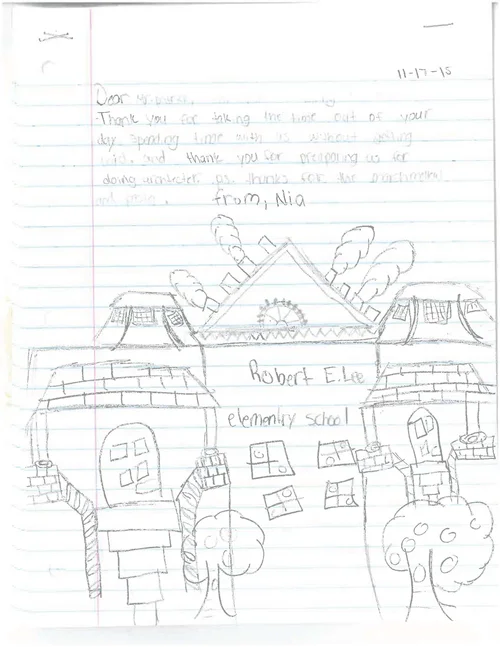 11-17-15
Dear
Thank you for taking the time out of your
day spending time with us without getting
and thank you for us for
doing ps. thanks for the
and
from, Nia
Robert E. Lee
elementry school